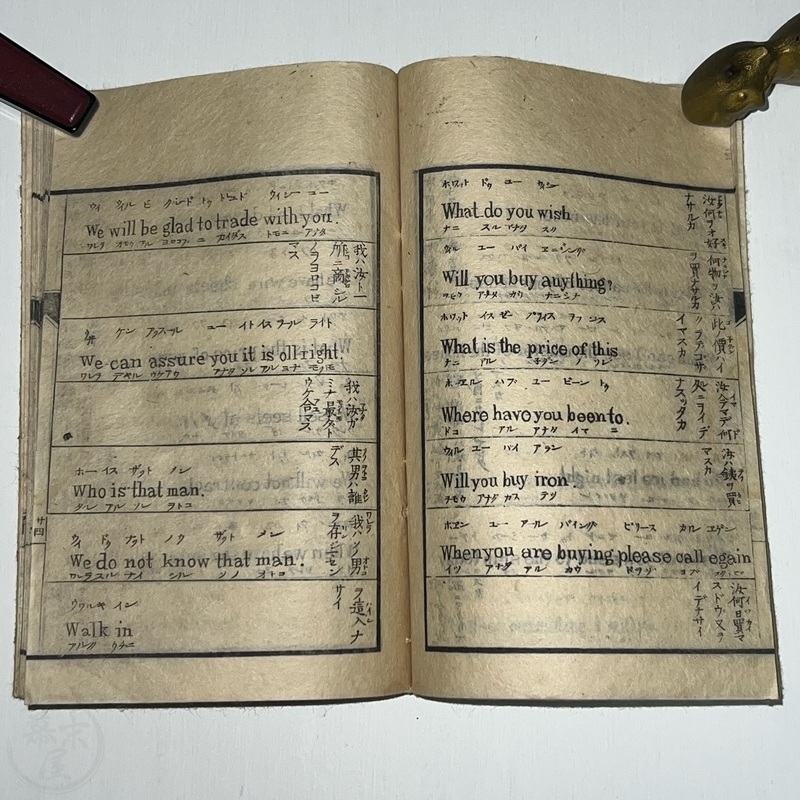 ホワット ドゥ ユー
What do you wish
ナニ スル アナタ
汝何ヲオ好
ナサルカ
ウィル ユー バイ エニシング
Will you buy anything?
アナタ カウ ナニシナ
何物ヲ汝ハ
ヲ買ナサルカ
ホワット イス ゼー プライス ヲフ ジス
What is the price of this
ナニ アル ネダン ノ コレ
此價ハイ
イマスカ
ホエル ハブ ユー ビーン トゥ
Where havo you beento.
ドコ アル アナタ イマ ニ
汝今マデ何
処ニヲイデ
ナスッタカ
ウィル ユー バイ アラン
Will you buy iron
アナタ カス テツ
汝ハ鉄ヲ買
マスカ
ホエン ユー アール バイイング プリース カル エゲン
When you are buying please call egain
イツ アナタ アル カウ
汝何日買マ
スドウゾ又ヲ
イデナサイ
ウィ ウィル ビ グラード トゥ トレード ウィジ ユー
We will be glad to trade with you.
ワレラ オモウ アル ヨロコブ ニ カイダス トモニ アナタ
我ハ汝ト一
所ニ商シル
ノヲヨロコビ
マス
ウィ ケン アッスール ユー イト イス ラール ライト
We can assure you it is oll right.
ワレラ デキル ウケアウ アナタ ソレ アル ミナ
我ハ汝ガ
ミナ最クト
ウケ合マス
ホー イス ザット メン
Who is that man.
ダレ アル ソレ ヲトコ
其男ハ誰
デス
ウィ ドゥ ナット ノウ ザット メン
We do not know that man.
ワレラ スル ナイ シル ソノ オトコ
我ハソノ男
ヲ存ニセン
ウヲルキ イン
Walk in
アルク ウチニ
ヲ這入ナ
サイ
廿四